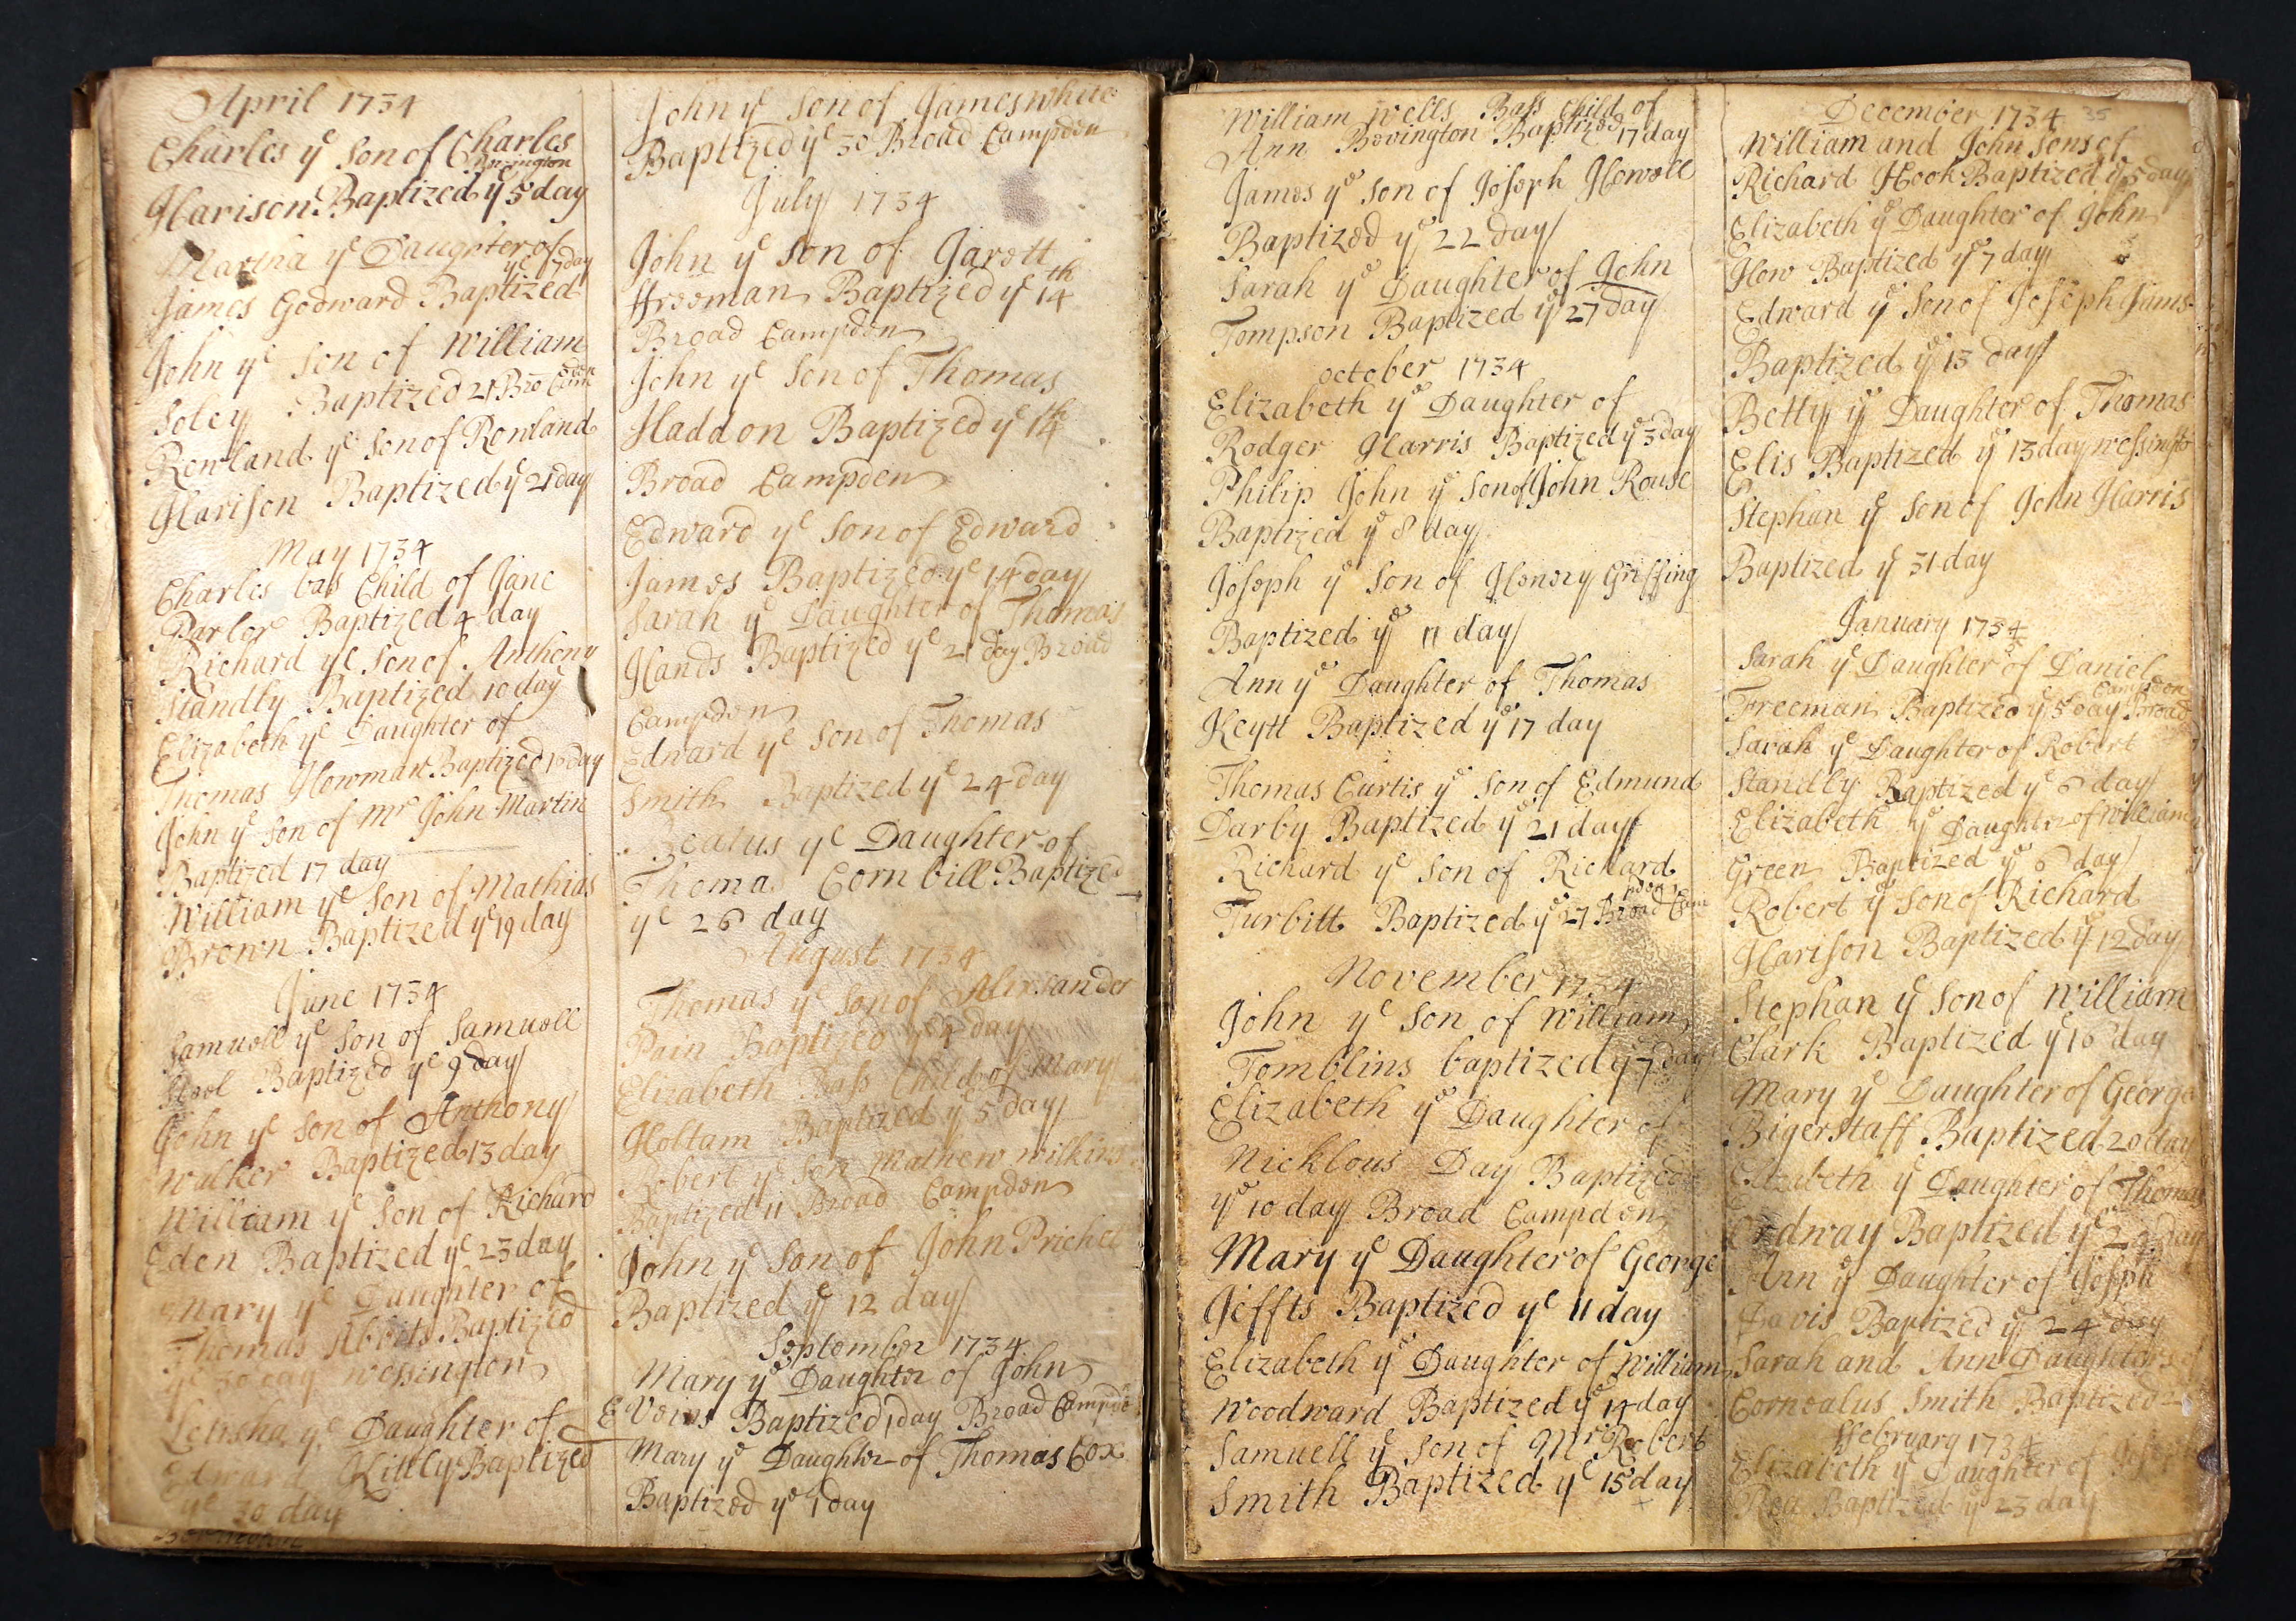 April 1734
Charles ye Son of Charles
Harison Baptized ye 5 day
Marina ye Daughter of
ye 17 day
James Godward Baptized
John ye Son of William
Soley Baptized 21 Bro Cam
Rowland ye Son of Rowland
Harison Baptized ye 21 day
May 1734
Charles bas Child of Jane
Parlor Baptized 4 day
Richard ye Son of Anthony
Standly Baptized 10 day
Elizabeth ye Daughter of
Thomas Howman Baptized day
John ye Son of Mr John Martin
Baptized 17 day
William ye Son of Mathias
Brown Baptized ye 19 day
June 1734
Samuell ye Son of Samuell
Baptized ye 9 day
John ye Son of Anthony
Walker Baptized 13 day
William ye Son of Richard
Eden Baptized ye 23 day
Mary ye Daughter of
Thomas Abbits Baptized
ye 30 day Wessington
Letisha ye Daughter of
Edward Kittly Baptized
ye 30 day
John ye Son of James White
Baptized ye 30 Broad Campden
July 1734
John ye Son of Garett
ffreeman Baptized ye 14th
Broad Campden
John ye Son of Thomas
Haddon Baptized ye 14th
Broad Campden
Edward ye Son of Edward
James Baptized ye 14 day
Sarah ye Daughter of Thomas
Hands Baptized ye 21 day Broad
Campden
Edward ye Son of Thomas
Smith Baptized ye 24 day
Beatus ye Daughter of
Thomas Cornbill Baptized
ye 26 day
August 1734
Thomas ye Son of Alexsander
Pain Baptized ye 4 day
Elizabeth Bass Child of Mary
Holtam Baptized ye 5 day
Robert ye Son Mathew Wilkins
Baptized 11 Broad Campden
John ye Son of John Prichet
Baptized ye 12 day
September 1734
Mary ye Daughter of John
Evens Baptized 1 day Broad Campde
Mary ye Daughter of Thomas Cox
Baptized ye 1 day
William Wells Bass Child of
Ann Bovington Baptized 17 day
James ye Son of Joseph Howell
Baptized ye 22 day
Sarah ye Daughter of John
Tompson Baptized ye 27 day
october 1734
Elizabeth ye Daughter of
Rodger Harris Baptized ye 3 day
Philip John ye Son of John Rouse
Baptized ye 8 day
Joseph ye Son of Henery Griffing
Baptized ye 11 day
Ann ye Daughter of Thomas
Keytt Baptized ye 17 day
Thomas Curtis ye Son of Edmund
Darby Baptized ye 21 day
Richard ye Son of Richard
Turbitt Baptized ye 27 Broad Cam
pden
November 1734
John ye Son of William
Tomblins baptized ye 7 day
Elizabeth ye Daughter of
Nicklous Day Baptized
ye 10 day Broad Campden
Mary ye Daughter of George
Jeffts Baptized ye 11 day
Elizabeth ye Daughter of William
Woodward Baptized ye 14 day
Samuell ye Son of Mr Robert
Smith Baptized ye 15 day
December 1734 35
William and John Sons of
Richard Hook Baptized ye 5 day
Elizabeth ye Daughter of John
How Baptized ye 7 day
Edward ye Son of Joseph
Baptized ye 13 day
Betty ye Daughter of Thomas
Elis Baptized ye 13 day Wessingto
Stephan ye Son of John Harris
Baptized ye 31 day
January 1734
Sarah ye Daughter of Daniel
Freeman Baptized ye 5 day Broad
Campden
Sarah ye Daughter of Robert
Standly Baptized ye 6 day
Elizabeth ye Daughter of William
Green Baptized ye 6 day
Robert ye Son of Richard
Harison Baptized ye 12 day
Stephan ye Son of William
Clark Baptized ye 16 day
Mary ye Daughter of George
Bigerstaff Baptized 20 day
Elizabeth ye Daughter of Thomas
Ordway Baptized ye day
Ann ye Daughter of Joseph
Davis Baptized ye 24 day
Sarah and Ann Daughters of
Cornealus Smith Baptized
ffebruary 1734
Elizabeth ye Daughter of
Baptized ye 23 day